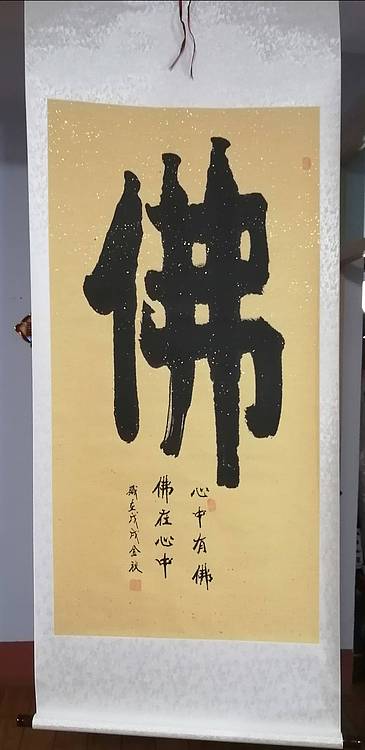 佛
心中有佛
佛在心中
歲在戊戌金秋